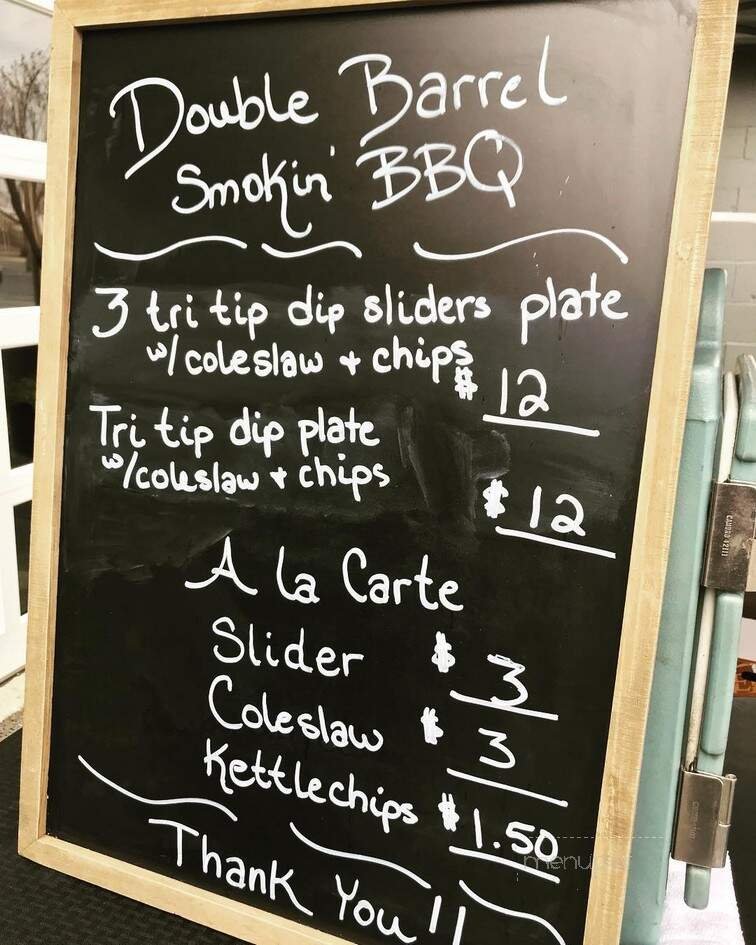 Double Barrel
Smokin' BBQ
3 tri tip dip sliders plate
w/coleslaw + chips
$ 12
Tri tip dip plate
w/coleslaw + chips
$ 12
A la Carte
Slider $ 3
Coleslaw $ 3
Kettlechips $1.50
Thank You!!